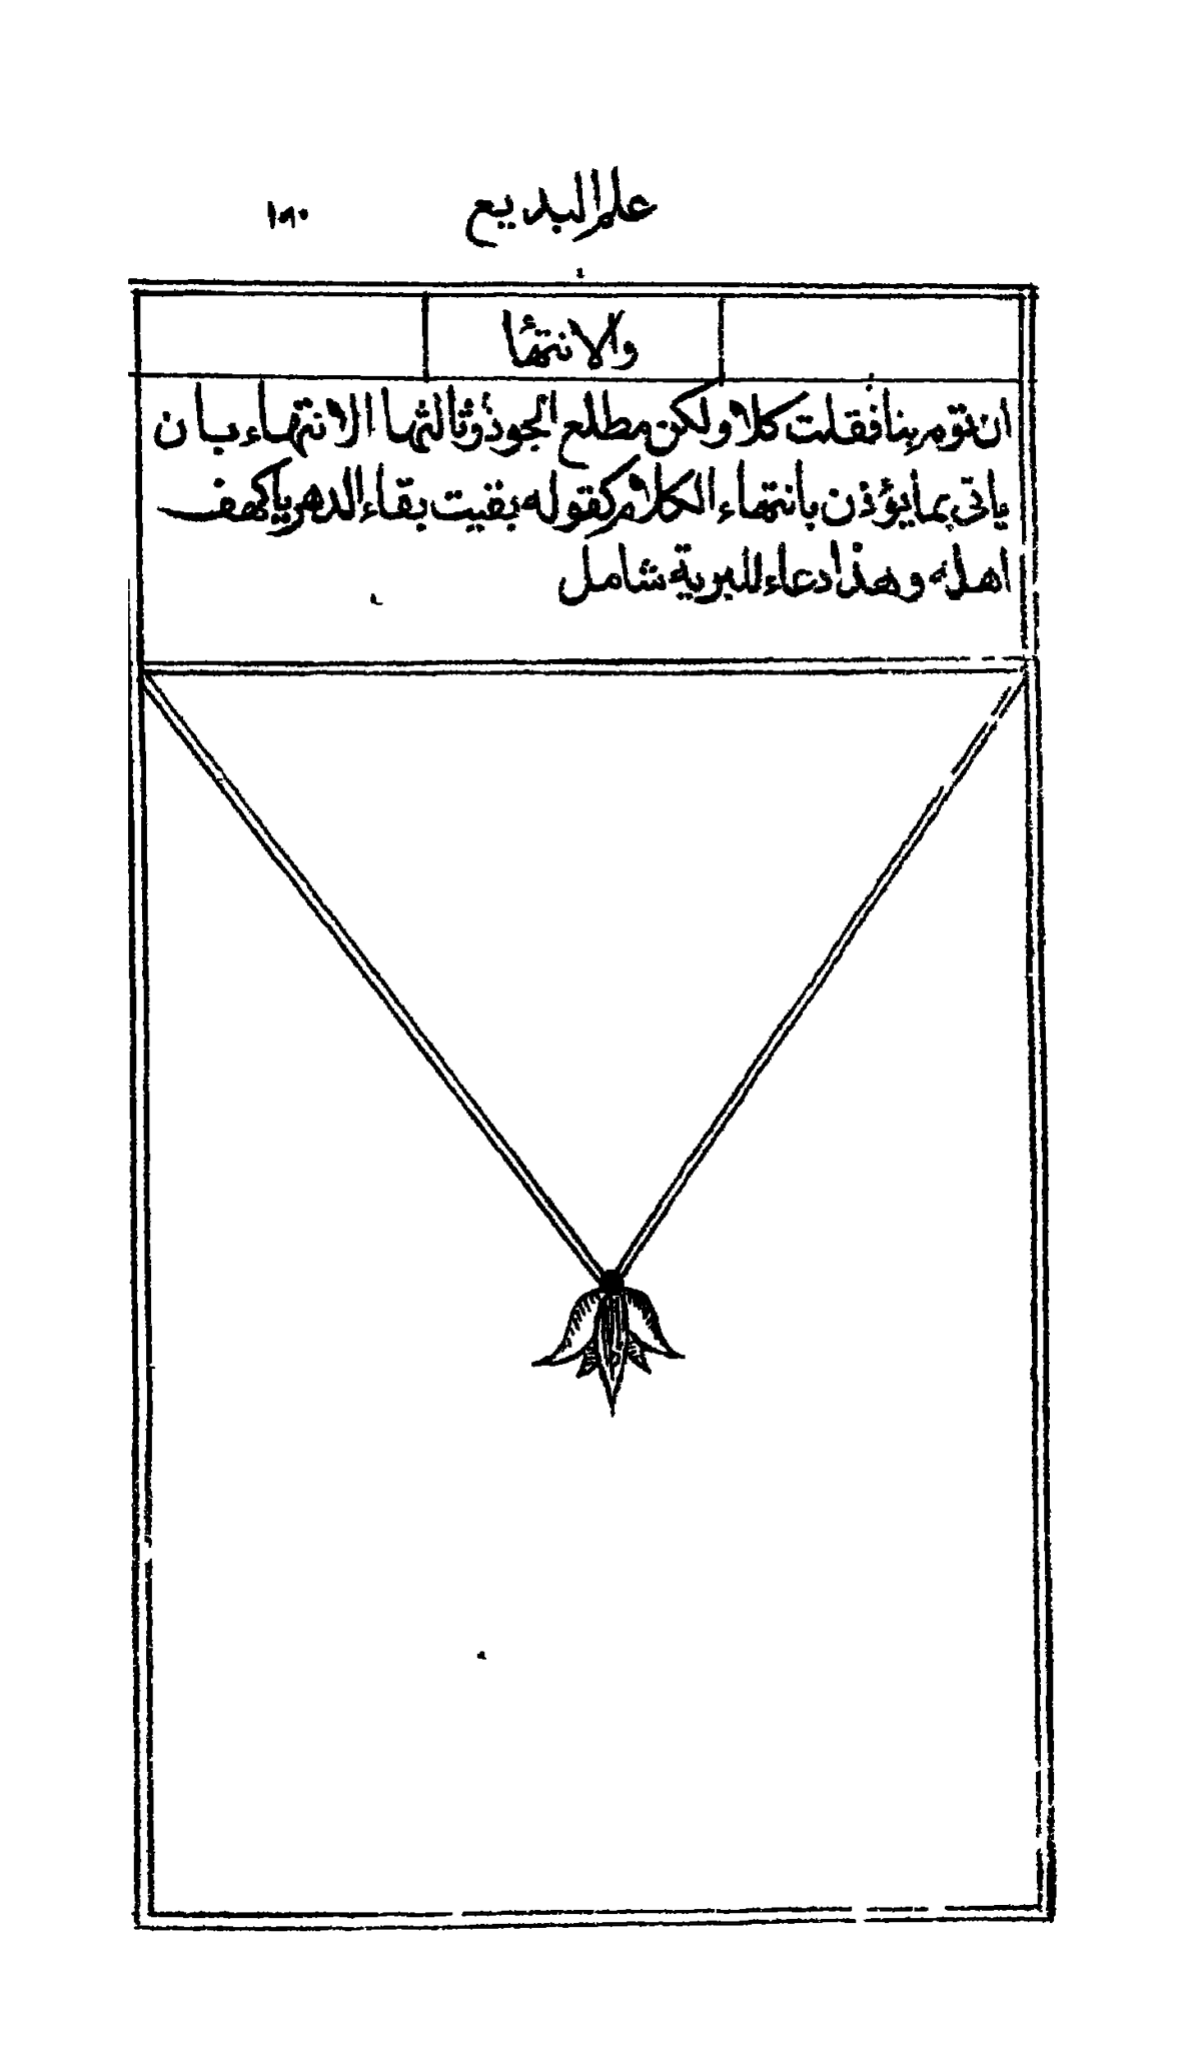 علم البديع ١٥٠
والانتهأ
ان تؤم بنا فقلت كلا ولكن مطلع الجود وثالثها الانتهاء بان
ياتى بما يؤذن بانتهاء الكلام كقوله بقيت بقاء الدهر يا كهف
اهله وهذا دعاء للبرية شامل